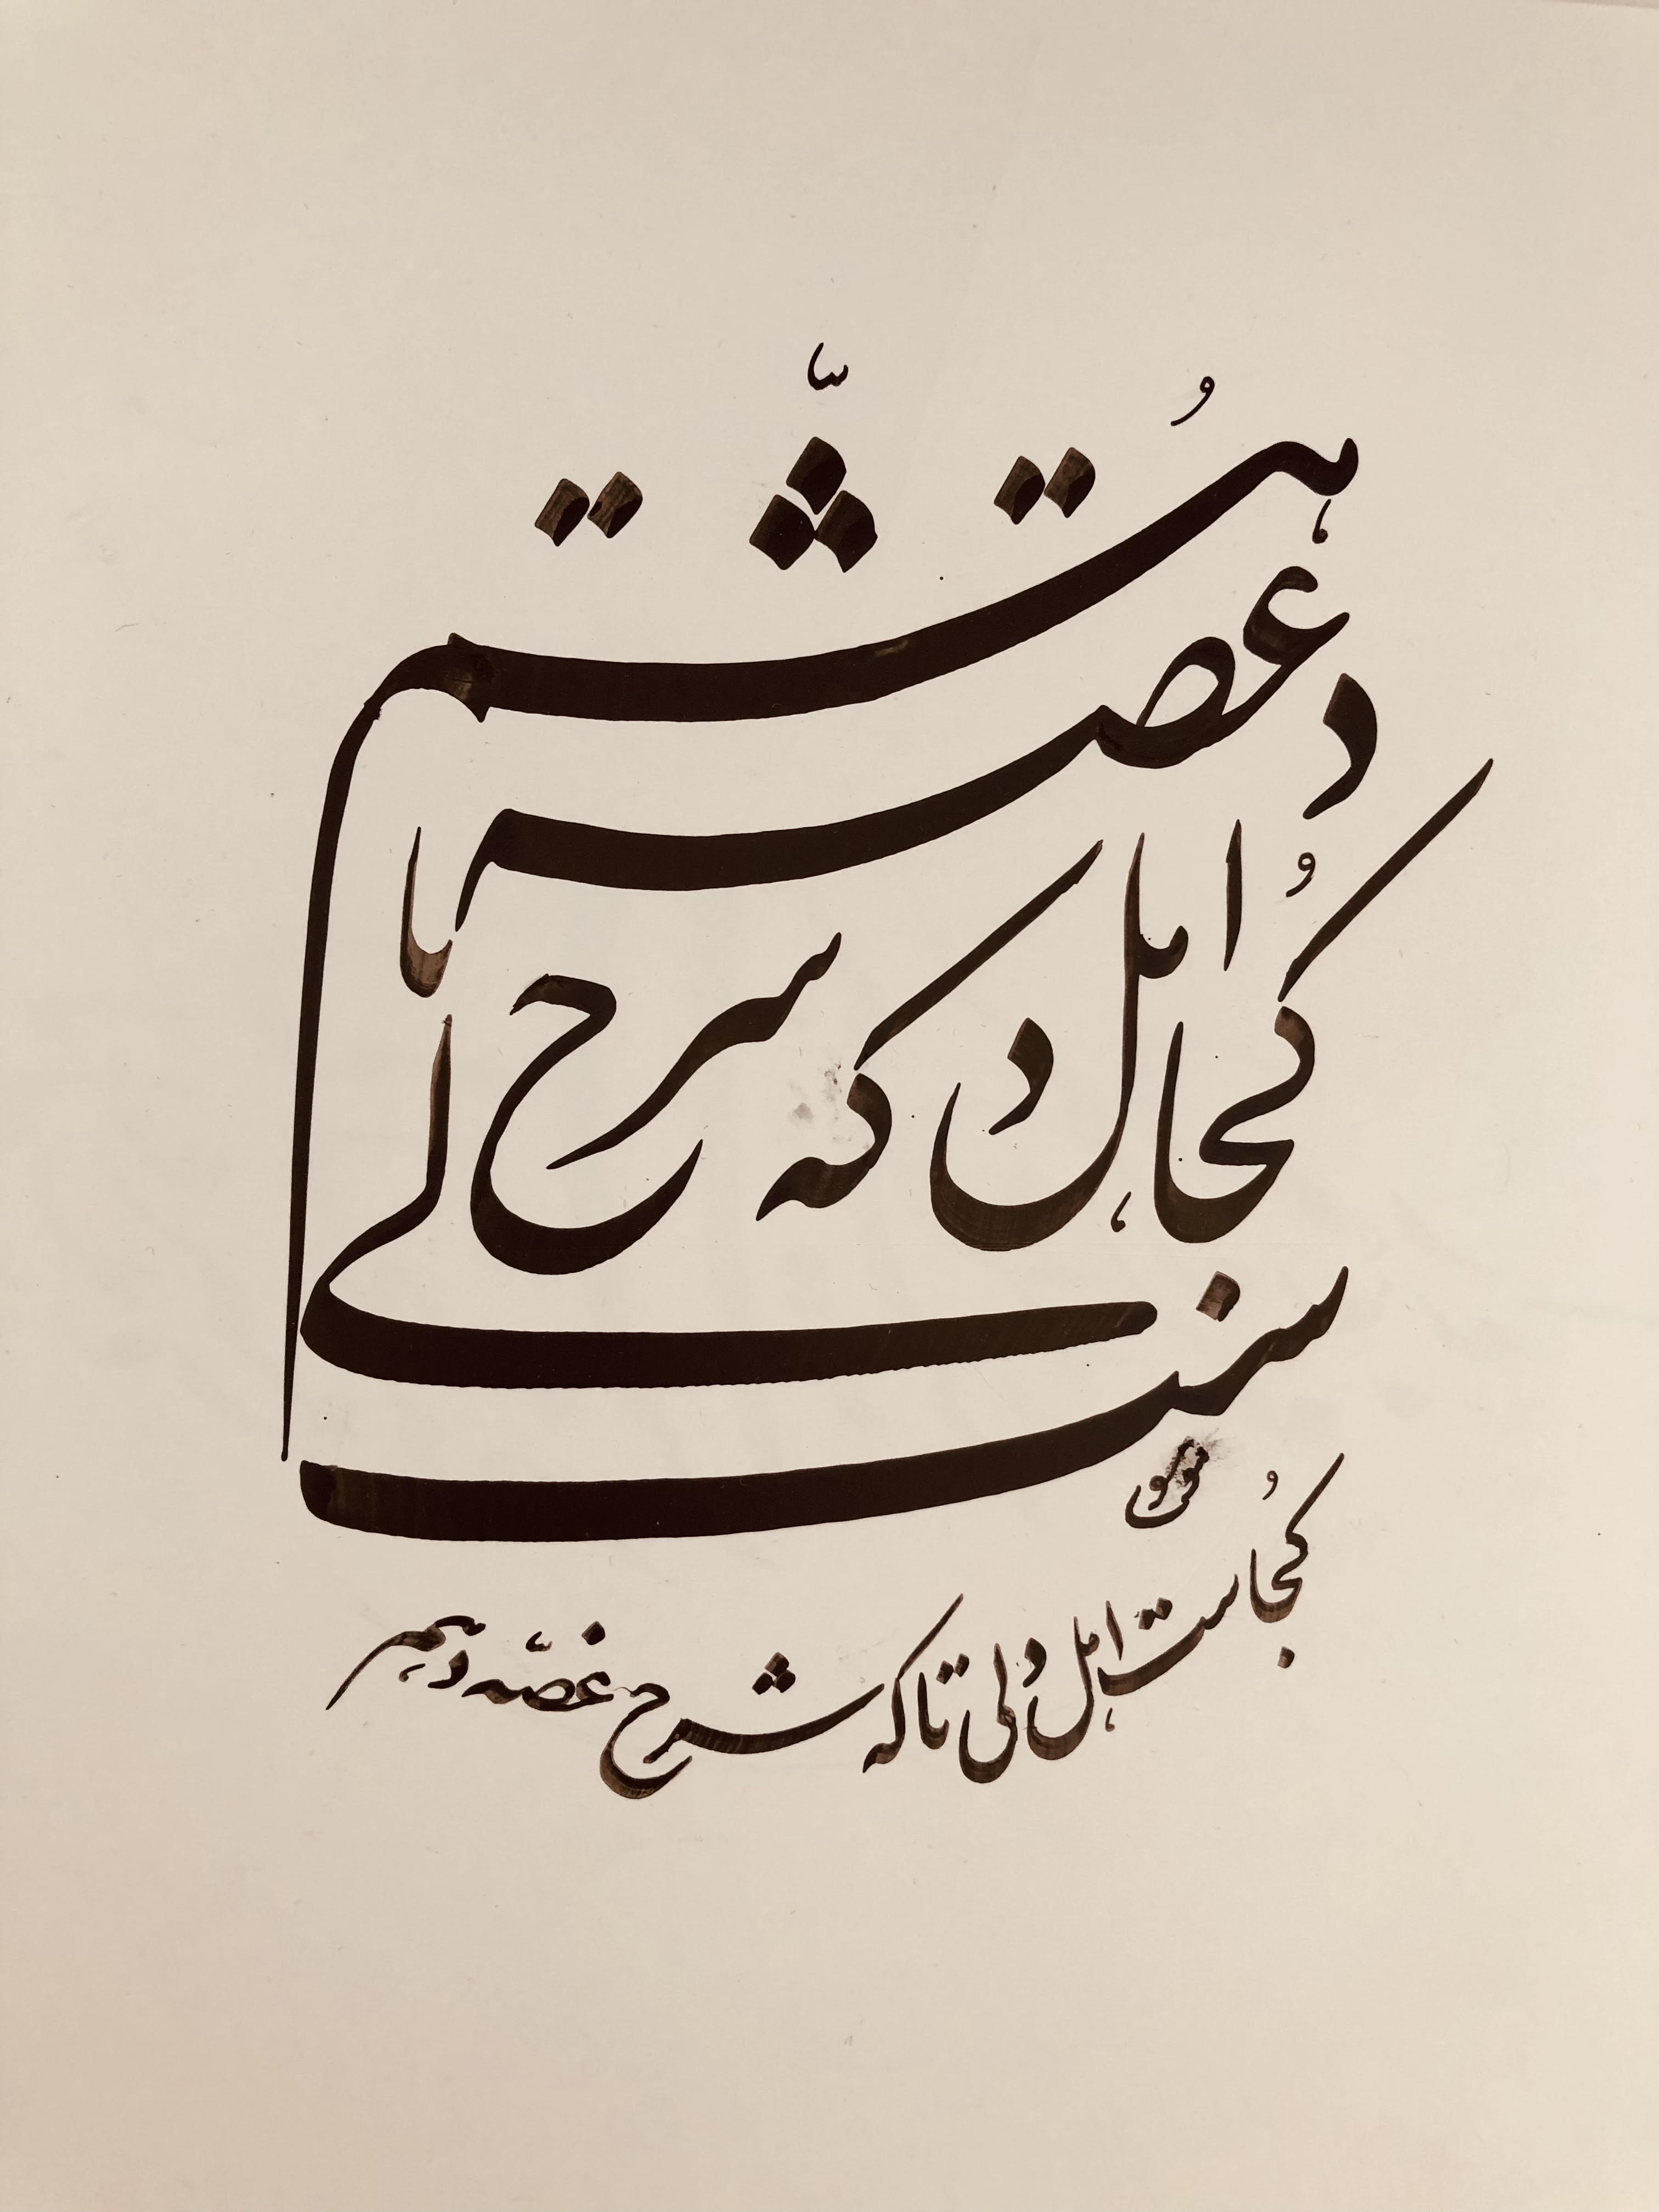 کُجاست اهل دلی تا که شرح غصّه دهم
کُجاست اهل دلی تا که شرح غصّه دهم